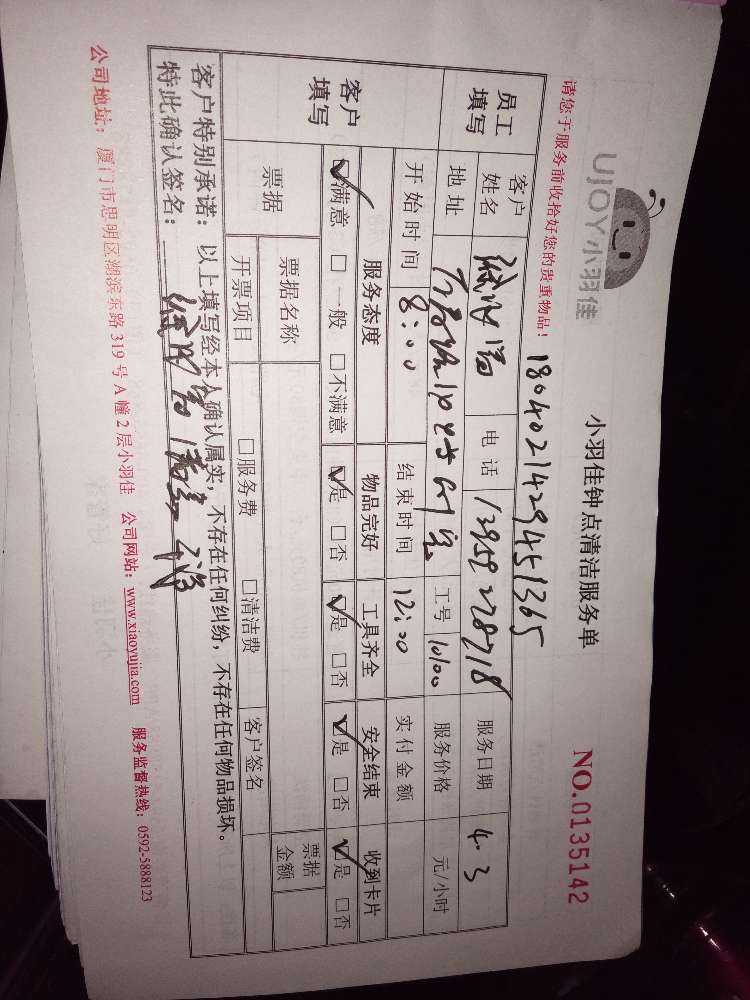 UJOY小羽佳
小羽佳钟点清洁服务单
NO.0135142
请您于服务前收拾好您的贵重物品！
18040214294451365
员工填写 客户姓名 电话 13959228218 服务日期 4.3
地址 工号 10100 服务价格 元/小时
开始时间 8:00 结束时间 12:00 实付金额
客户填写 服务态度 物品完好 工具齐全 安全结束 收到卡片
☑满意 □一般 □不满意 ☑是 □否 ☑是 □否 ☑是 □否 ☑是 □否
票据 票据名称 票据金额
开票项目 □服务费 □清洁费 客户签名
客户特别承诺：以上填写经本人确认属实，不存在任何纠纷，不存在任何物品损坏。
特此确认签名：
公司地址：厦门市思明区湖滨东路319号A幢2层小羽佳 公司网站：www.xiaoyujia.com 服务监督热线：0592-5888123